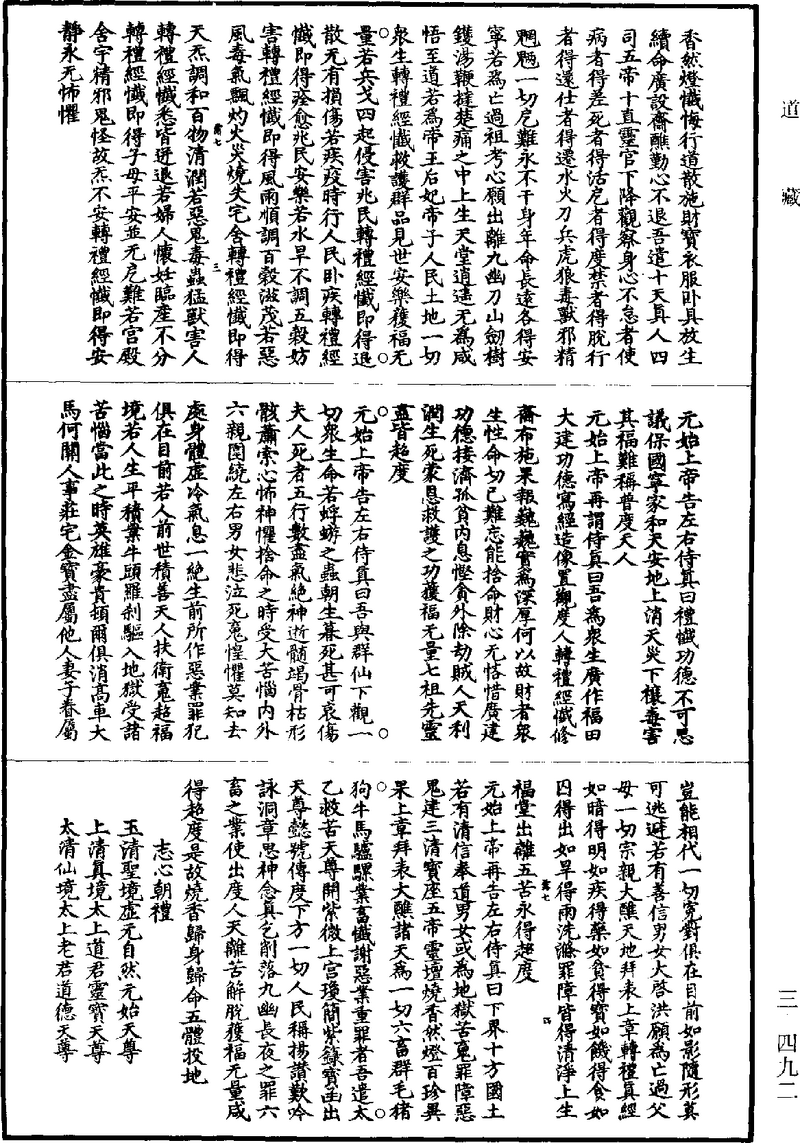 道藏
香然燈懺悔行道散施財寶衣服卧具放生
續命廣設齋醮勤心不退吾遣十天真人四
司五帝十直靈官下降觀察身心不怠者使
病者得差死者得活危者得度禁者得脫行
者得還仕者得遷水火刀兵虎狼毒獸邪精
魍魎一切危難永不干身年命長遠各得安
寧若為亡過祖考心願出離九幽刀山劒樹
鑊湯鞭撻楚痛之中上生天堂逍遥无為咸
悟至道若為帝王后妃帝子人民土地一切
衆生轉禮經懺救護群品見世安樂獲福无
量若兵戈四起侵害兆民轉禮經懺即得退
散无有損傷若疾疫時行人民卧疾轉禮經
懺即得痊愈兆民安樂若水旱不調五穀妨
害轉禮經懺即得風雨順調百穀滋茂若惡
風毒氣飄灼火災燒失宅舍轉禮經懺即得
天炁調和百物清潤若惡鬼毒蟲猛獸害人
轉禮經懺悉皆迸退若婦人懷妊臨產不分
轉禮經懺即得子母平安並无危難若宮殿
舍宇精邪鬼怪故炁不安轉禮經懺即得安
靜永无怖懼
元始上帝告左右侍真曰禮懺功德不可思
議保國寧家和天安地上消天災下禳毒害
其福難稱普度天人
元始上帝再謂侍真曰吾為衆生廣作福田
大建功德寫經造像置觀度人轉禮經懺修
齋布施果報巍巍寶為深厚何以故財者衆
生性命切己難忘能捨命財心无恡惜廣建
功德接濟孤貧内息慳貪外除劫賊人天利
潤生死蒙恩救護之功獲福无量七祖先靈
盡皆超度
元始上帝告左右侍真曰吾與群仙下觀一
切衆生命若蜉蝣之蟲朝生暮死甚可哀傷
夫人死者五行數盡氣絕神逝髓竭骨枯形
骸蕭索心怖神懼捨命之時受大苦惱内外
六親圍繞左右男女悲泣死魂惶懼莫知去
處身體虛冷氣息一絕生前所作惡業罪犯
俱在目前若人前世積善天人扶衛䰟超福
境若人生平積業牛頭羅刹驅入地獄受諸
苦惱當此之時英雄豪貴頓爾俱消高車大
馬何關人事莊宅金寶盡屬他人妻子眷屬
豈能相代一切寃對俱在目前如影隨形莫
可逃避若有善信男女大啓洪願為亡過父
母一切宗親大醮天地拜表上章轉禮真經
如暗得明如疾得藥如貧得寶如饑得食如
囚得出如旱得雨洗滌罪障皆得清淨上生
福堂出離五苦永得超度
元始上帝再告左右侍真曰下界十方國土
若有清信奉道男女或為地獄苦䰟罪障惡
鬼建三清寶座五帝靈壇燒香然燈百珍異
果上章拜表大醮諸天為一切六畜群毛猪
狗牛馬驢騾業畜懺謝惡業重罪者吾遣太
乙救苦天尊開紫微上宮瓊簡紫籙寶函出
天尊懿號傳度下方一切人民稱揚讃歎吟
詠洞章思神念真乞削落九幽長夜之罪六
畜之業使出度人天離苦解脫獲福无量咸
得超度是故燒香歸身歸命五體投地
志心朝禮
玉清聖境虛无自然元始天尊
上清真境太上道君靈寶天尊
太清仙境太上老君道德天尊
三·四九二